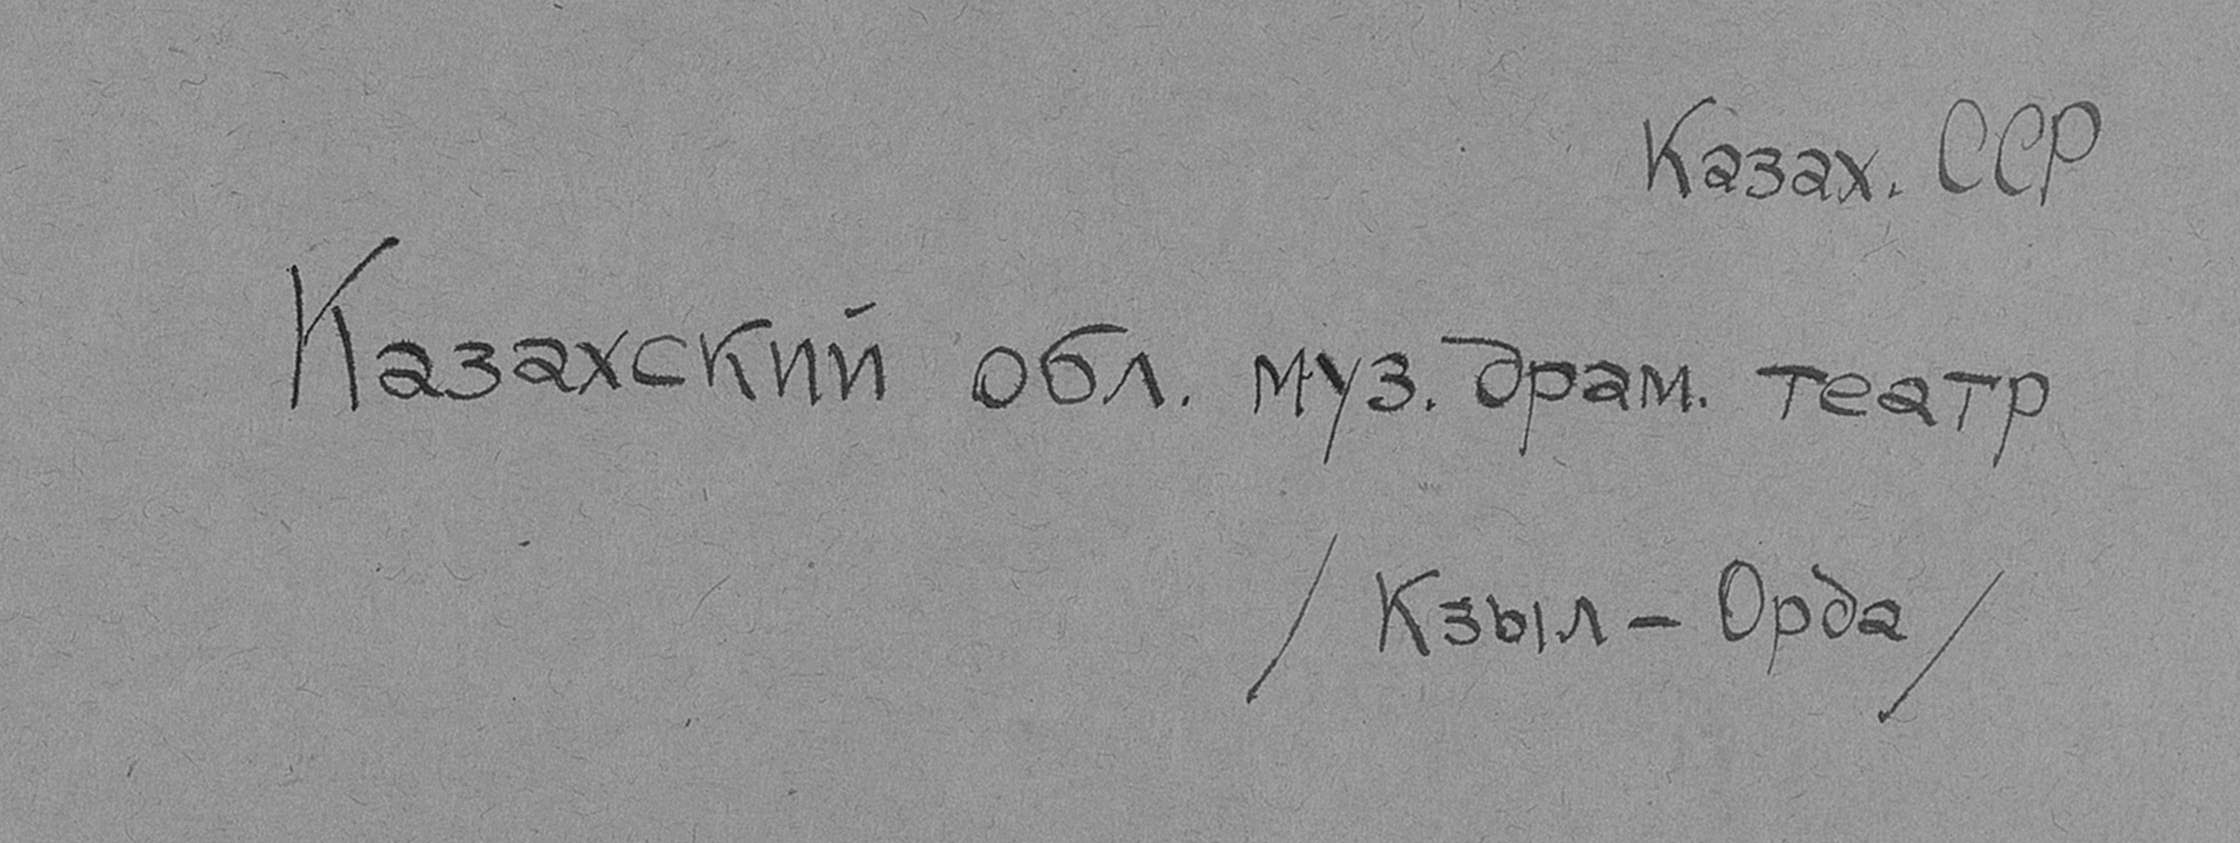 Казах. ССР
Казахский обл. муз. драм. театр
/ Кзыл - Орда /